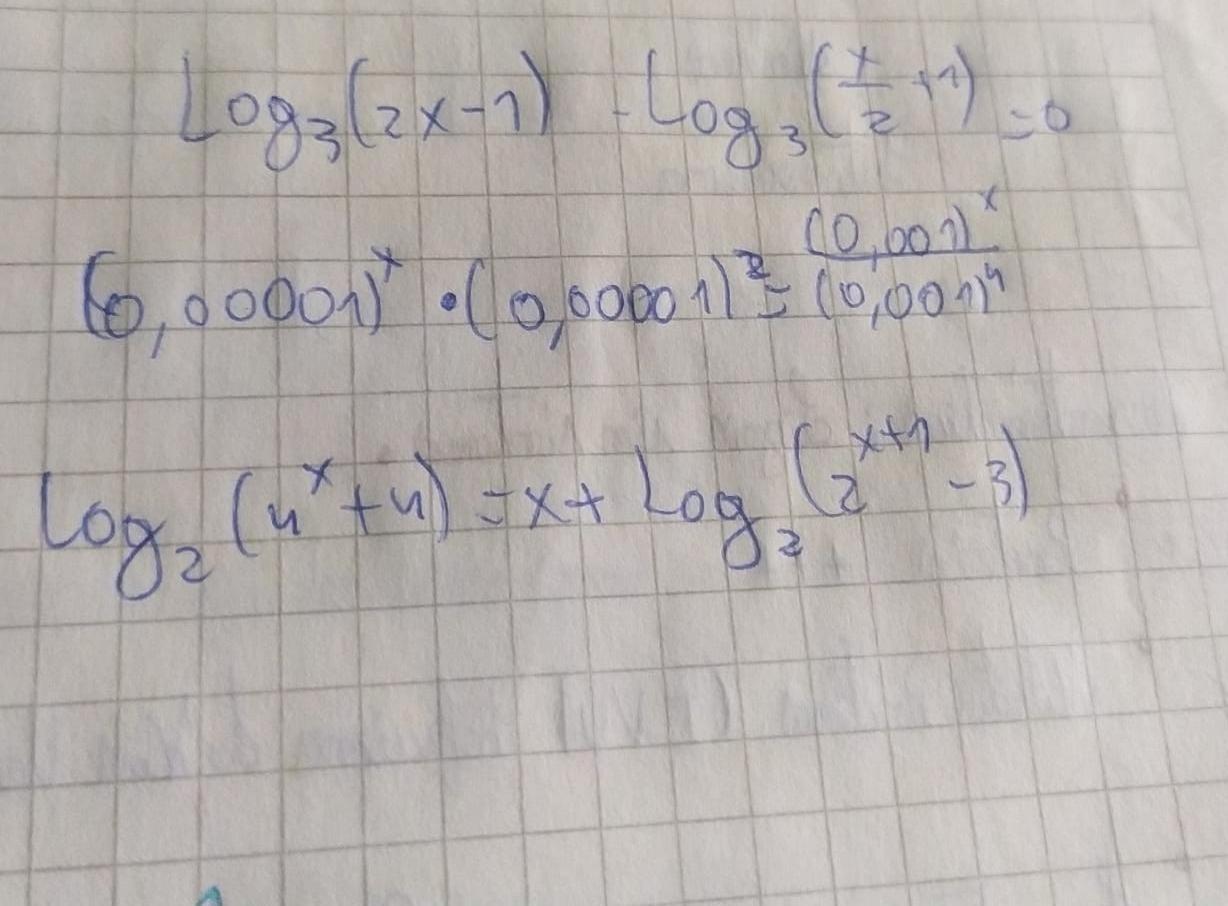 Log₃(2x-1) - Log₃(x/2 +1) = 0
(0,00001)ˣ • (0,00001)² = (0,001)ˣ/(0,001)⁴
Log₂(4ˣ+4) = x + Log₂(2ˣ⁺¹ - 3)